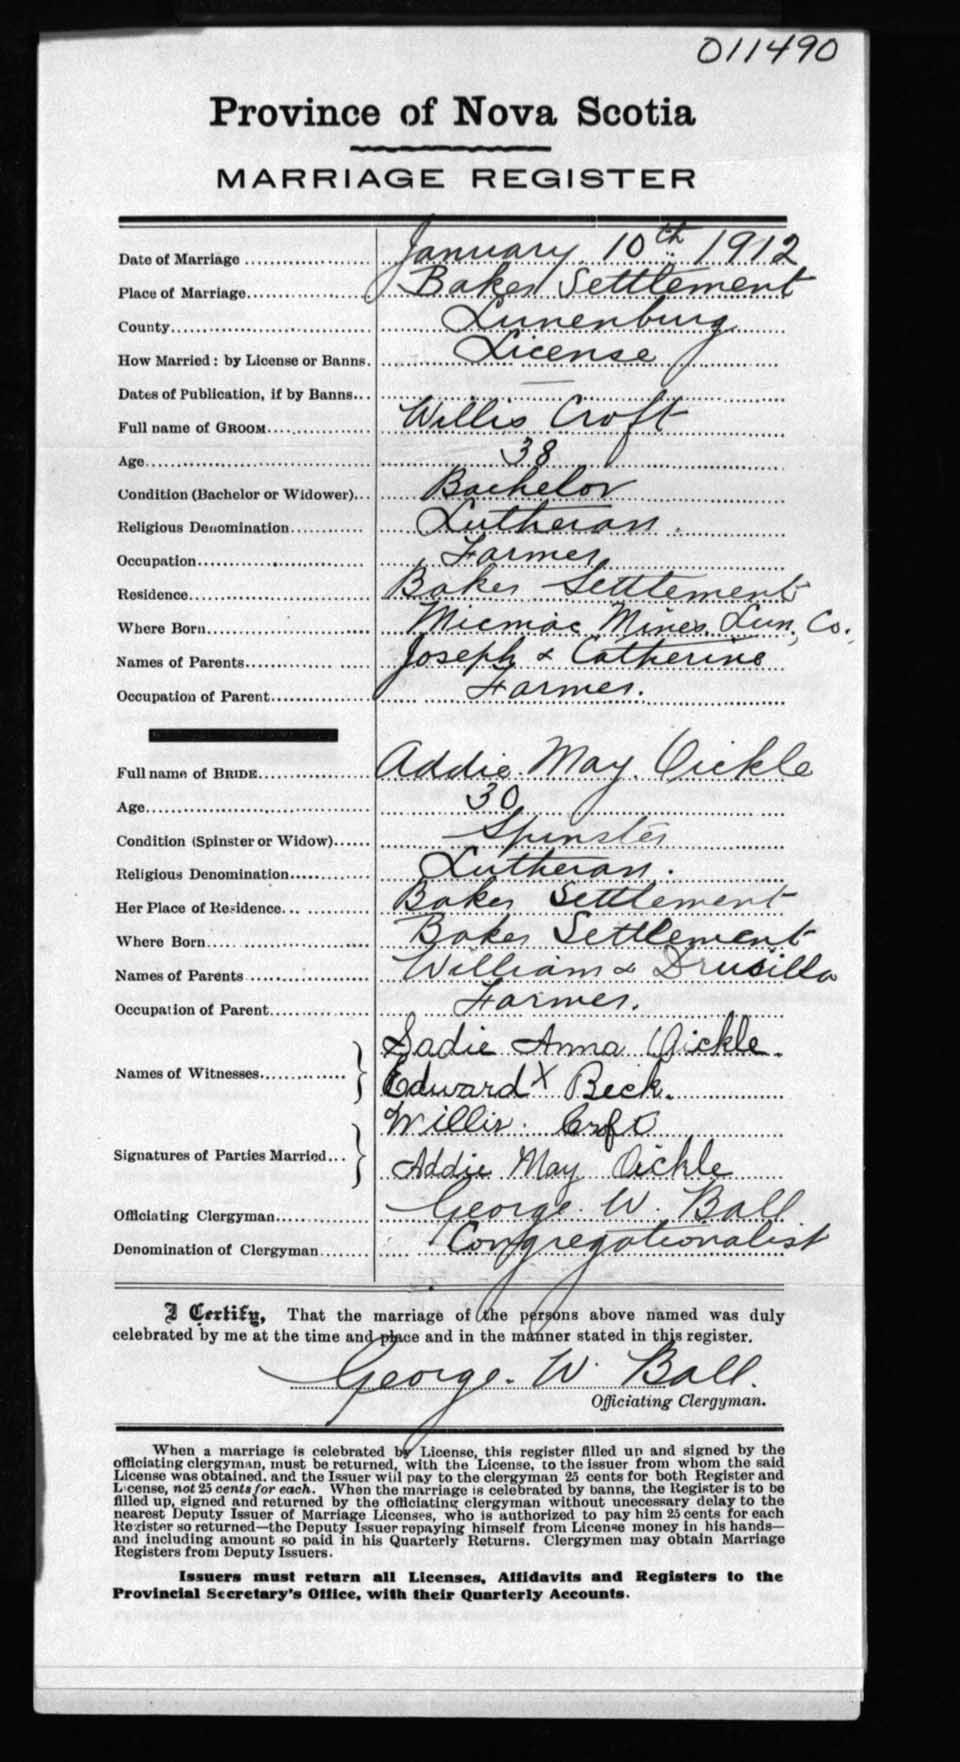 011490
Province of Nova Scotia
MARRIAGE REGISTER
Date of Marriage January 10th 1912
Place of Marriage Baker Settlement
County Lunenburg
How Married: by License or Banns. License
Dates of Publication, if by Banns... —
Full name of GROOM Willis Croft
Age 38
Condition (Bachelor or Widower) Bachelor
Religious Denomination Lutheran.
Occupation Farmer
Residence Baker Settlement
Where Born Micmac Mines, Lun, Co.
Names of Parents Joseph & Catherine
Occupation of Parent Farmer.
Full name of BRIDE Addie May Oickle
Age 30
Condition (Spinster or Widow) Spinster
Religious Denomination Lutheran.
Her Place of Residence Baker Settlement
Where Born Baker Settlement
Names of Parents William & Drusilla
Occupation of Parent Farmer.
Sadie Anna Oickle.
Names of Witnesses
Edward X Beck.
Willis Croft
Signatures of Parties Married
Addie May Oickle
Officiating Clergyman George W. Ball
Denomination of Clergyman Congregationalist
I Certify, That the marriage of the persons above named was duly
celebrated by me at the time and place and in the manner stated in this register.
George W. Ball.
Officiating Clergyman.
When a marriage is celebrated by License, this register filled up and signed by the
officiating clergyman, must be returned, with the License, to the issuer from whom the said
License was obtained, and the Issuer will pay to the clergyman 25 cents for both Register and
License, not 25 cents for each. When the marriage is celebrated by banns, the Register is to be
filled up, signed and returned by the officiating clergyman without unnecessary delay to the
nearest Deputy Issuer of Marriage Licenses, who is authorized to pay him 25 cents for each
Register so returned—the Deputy Issuer repaying himself from License money in his hands—
and including amount so paid in his Quarterly Returns. Clergymen may obtain Marriage
Registers from Deputy Issuers.
Issuers must return all Licenses, Affidavits and Registers to the
Provincial Secretary's Office, with their Quarterly Accounts.